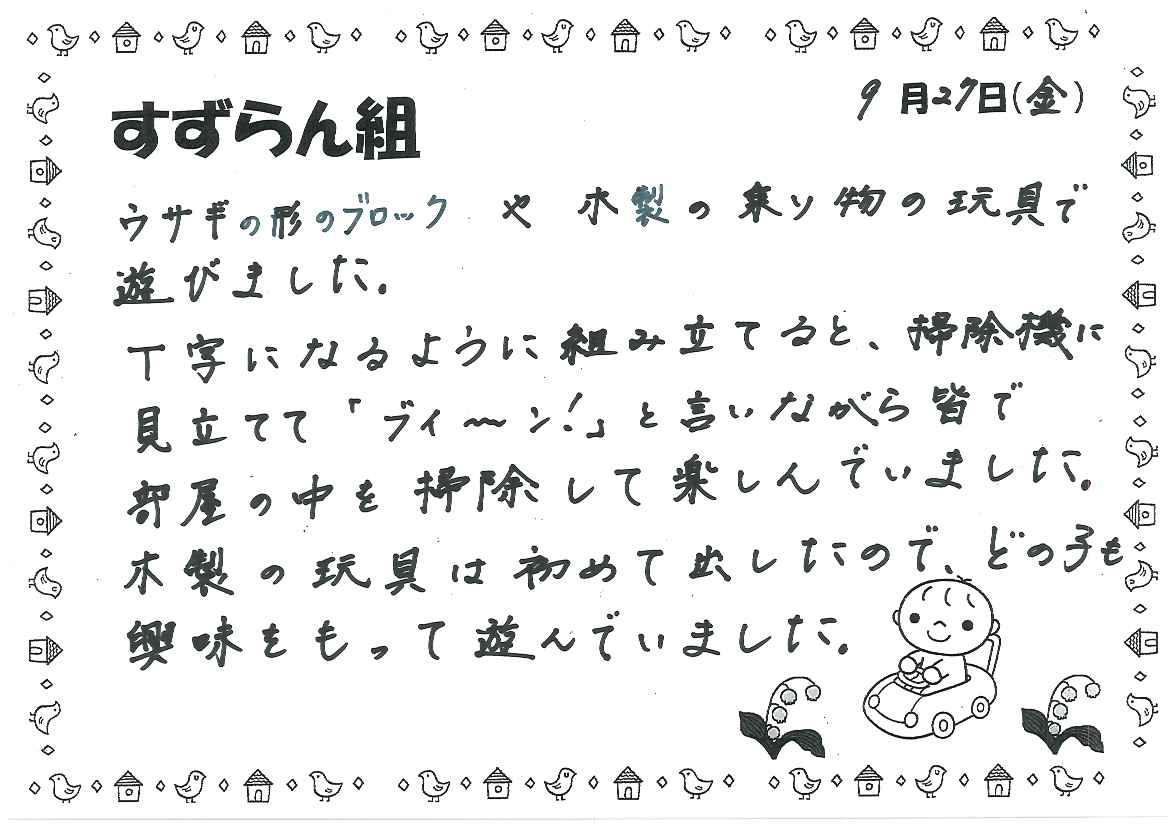 9月27日(金)
すずらん組
ウサギの形のブロック や 木製の乗り物の玩具で
遊びました。
T字になるように組み立てると、掃除機に
見立てて「ブィ〜ン!」と言いながら皆で
部屋の中を掃除して楽しんでいました。
木製の玩具は初めて出したので、どの子も
興味をもって遊んでいました。